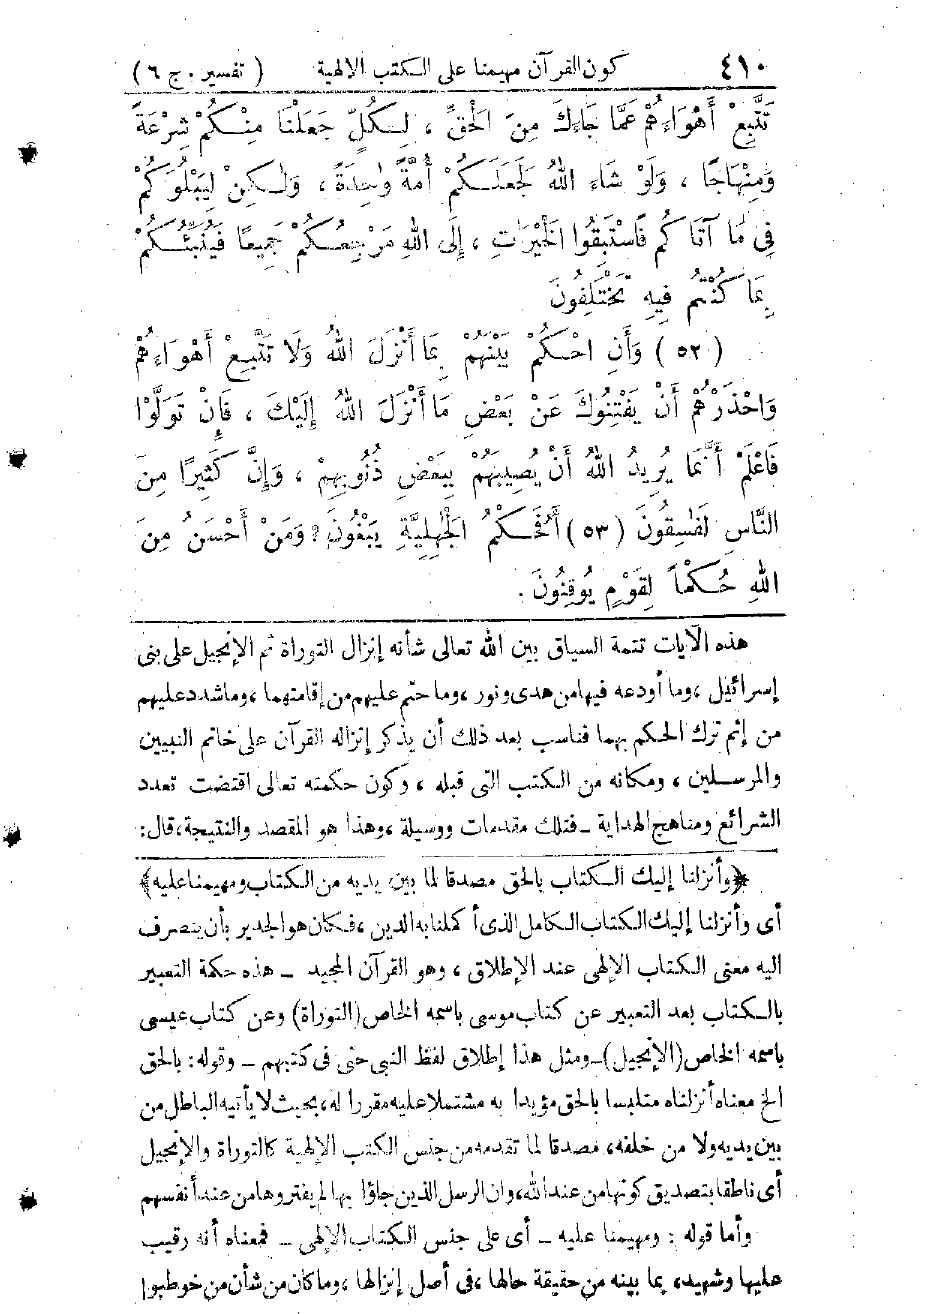 ٤١٠ كون القرآن مهيمنا على الكتب الالهية ( تفسير . ج ٦ )
تَتَّبِعْ أَهْوَاءَهُمْ عَمَّا جَاءَكَ مِنَ الْحَقِّ ، لِكُلٍّ جَعَلْنَا مِنْكُمْ شِرْعَةً
وَمِنْهَاجًا ، وَلَوْ شَاءَ اللهُ لَجَعَلَكُمْ أُمَّةً وَاحِدَةً ، وَلَـكِنْ لِيَبْلُوَكُمْ
فِي مَا آتَاكُمْ فَاسْتَبِقُوا الْخَيْرَاتِ ، إِلَى اللهِ مَرْجِعُكُمْ جَمِيعًا فَيُنَبِّئُكُمْ
بِمَا كُنْتُمْ فِيهِ تَخْتَلِفُونَ
( ٥٢ ) وَأَنِ احْكُمْ بَيْنَهُمْ بِمَا أَنْزَلَ اللهُ وَلَا تَتَّبِعْ أَهْوَاءَهُمْ
وَاحْذَرْهُمْ أَنْ يَفْتِنُوكَ عَنْ بَعْضِ مَا أَنْزَلَ اللهُ إِلَيْكَ ، فَإِنْ تَوَلَّوْا
فَاعْلَمْ أَنَّمَا يُرِيدُ اللهُ أَنْ يُصِيبَهُمْ بِبَعْضِ ذُنُوبِهِمْ ، وَإِنَّ كَثِيرًا مِنَ
النَّاسِ لَفَسِقُونَ ( ٥٣ ) أَفَحُكْمُ الْجَهِلِيَّةِ يَبْغُونَ ؟ وَمَنْ أَحْسَنُ مِنَ
اللهِ حُكْماً لِقَوْمٍ يُوقِنُونَ .
هذه الآيات تتمة السياق بين الله تعالى شأنه إنزال التوراة ثم الإنجيل على بنى
إسرائيل ، وما أودعه فيها من هدى ونور ، وما حتم عليهم من إقامتهما ، وما شدد عليهم
من إثم ترك الحكم بهما فناسب بعد ذلك أن يذكر إنزاله القرآن على خاتم النبيين
والمرسلين ، ومكانه من الكتب التى قبله ، وكون حكمته تعالى اقتضت تعدد
الشرائع ومناهج الهداية ــ فتلك مقدمات ووسيلة ، وهذا هو المقصد والنتيجة ، قال :
﴿ وأنزلنا إليك الكتاب بالحق مصدقا لما بين يديه من الكتاب ومهيمنا عليه ﴾
أى وأنزلنا إليك الكتاب الكامل الذى أكملنا به الدين ، فكان هو الجدير بأن ينصرف
اليه معنى الكتاب الإلهى عند الإطلاق ، وهو القرآن المجيد ــ هذه حكمة التعبير
بالكتاب بعد التعبير عن كتاب موسى باسمه الخاص (التوراة) وعن كتاب عيسى
باسمه الخاص (الإنجيل) ــ ومثل هذا إطلاق لفظ النبى حتى فى كتبهم ــ وقوله : بالحق
الخ معناه أنزلناه متلبسا بالحق مؤيدا به مشتملا عليه مقررا له ، بحيث لا يأتيه الباطل من
بين يديه ولا من خلفه ، مصدقا لما تقدمه من جنس الكتب الإلهية كالتوراة والإنجيل
أى ناطقا بتصديق كونها من عند الله ، وان الرسل الذين جاؤا بها لم يفتروها من عند أنفسهم
وأما قوله : ومهيمنا عليه ــ أى على جنس الكتاب الإلهى ــ فمعناه أنه رقيب
عليها وشهيد ، بما بينه من حقيقة حالها ، فى أصل إنزالها ، وما كان من شأن من خوطبوا